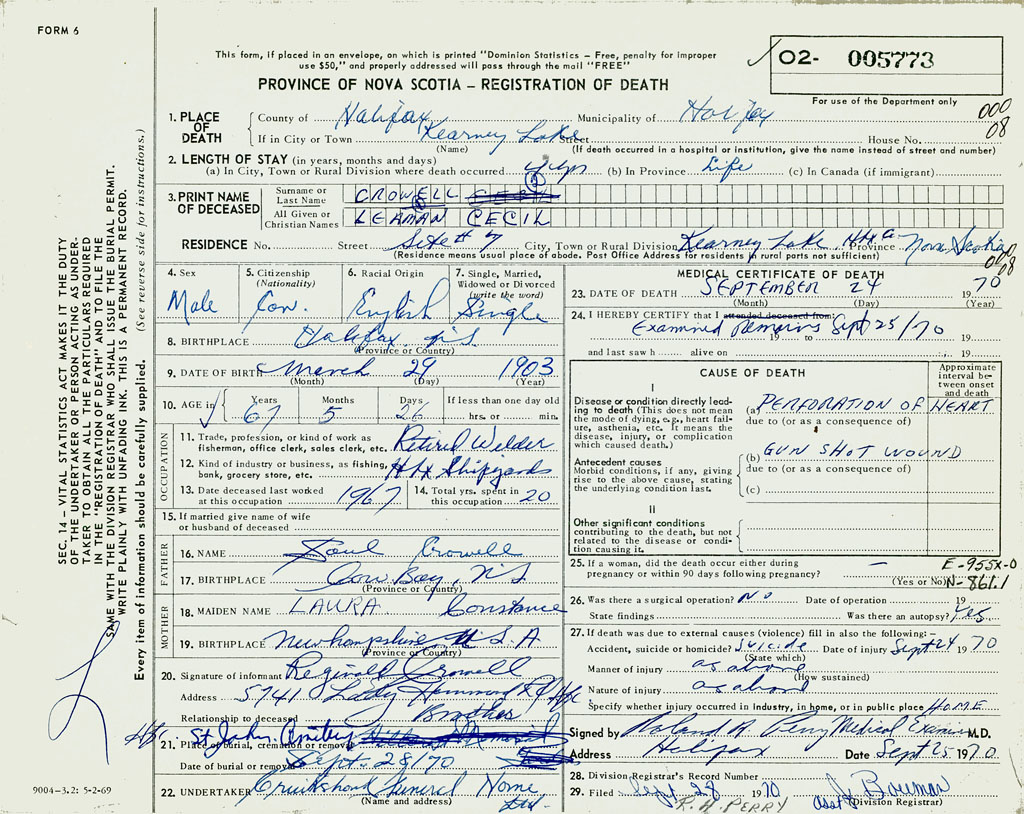 FORM 6
This form, if placed in an envelope, on which is printed "Dominion Statistics – Free, penalty for improper
use $50," and properly addressed will pass through the mail "FREE"
02- 005773
For use of the Department only
PROVINCE OF NOVA SCOTIA – REGISTRATION OF DEATH
000
08
1. PLACE OF DEATH
County of Halifax Municipality of Halifax
If in City or Town Kearney Lake Street House No.
(Name) (If death occurred in a hospital or institution, give the name instead of street and number)
2. LENGTH OF STAY (in years, months and days)
(a) In City, Town or Rural Division where death occurred (b) In Province Life (c) In Canada (if immigrant)
3. PRINT NAME OF DECEASED
Surname or Last Name CROWELL
All Given or Christian Names LEAMAN CECIL
RESIDENCE No. Street Site # 7 City, Town or Rural Division Kearney Lake Hfx Co Province Nova Scotia
(Residence means usual place of abode. Post Office Address for residents in rural parts not sufficient)
000
08
4. Sex Male
5. Citizenship (Nationality) Can.
6. Racial Origin English
7. Single, Married, Widowed or Divorced (write the word) Single
8. BIRTHPLACE Halifax N.S.
(Province or Country)
9. DATE OF BIRTH March 29 1903
(Month) (Day) (Year)
10. AGE in Years 67 Months 5 Days 26 If less than one day old hrs. or min.
OCCUPATION
11. Trade, profession, or kind of work as fisherman, office clerk, sales clerk, etc. Retired Welder
12. Kind of industry or business, as fishing, bank, grocery store, etc. Hfx Shipyards
13. Date deceased last worked at this occupation 1967
14. Total yrs. spent in this occupation 20
15. If married give name of wife or husband of deceased
FATHER
16. NAME Saul Crowell
17. BIRTHPLACE Cow Bay, N.S.
(Province or Country)
MOTHER
18. MAIDEN NAME LAURA Constance
19. BIRTHPLACE New hampshire U.S.A
(Province or Country)
20. Signature of informant Reginald Crowell
Address 5741 Lady Hammond Rd Hfx
Relationship to deceased Brother
21. Place of burial, cremation or removal St John Cemetery Hfx.
Date of burial or removal Sept. 28/70
22. UNDERTAKER Cruikshank Funeral Home Ltd.
(Name and address)
MEDICAL CERTIFICATE OF DEATH
23. DATE OF DEATH SEPTEMBER 24 1970
(Month) (Day) (Year)
24. I HEREBY CERTIFY that I attended deceased from:
Examined Remains Sept 25/70
19 to 19
and last saw h alive on 19
CAUSE OF DEATH
Approximate interval between onset and death
I
Disease or condition directly leading to death (This does not mean the mode of dying, e.g., heart failure, asthenia, etc. It means the disease, injury, or complication which caused death.)
(a) PERFORATION OF HEART
due to (or as a consequence of)
Antecedent causes
Morbid conditions, if any, giving rise to the above cause, stating the underlying condition last.
(b) GUN SHOT WOUND
due to (or as a consequence of)
(c)
II
Other significant conditions contributing to the death, but not related to the disease or condition causing it.
25. If a woman, did the death occur either during pregnancy or within 90 days following pregnancy? – (Yes or No)
E-955X-0
N-861.1
26. Was there a surgical operation? No Date of operation 19
State findings Was there an autopsy? Yes
27. If death was due to external causes (violence) fill in also the following:–
Accident, suicide or homicide? Suicide Date of injury Sept 24 1970
(State which)
Manner of injury as above
(How sustained)
Nature of injury as above
Specify whether injury occurred in industry, in home, or in public place HOME
Signed by Roland A. Perry Medical Examiner M.D.
Address Halifax Date Sept 25 1970.
28. Division Registrar's Record Number
29. Filed Sept 28 1970 Asst J. Bowman
(Division Registrar)
R. A. PERRY
SEC. 14 – VITAL STATISTICS ACT MAKES IT THE DUTY
OF THE UNDERTAKER OR PERSON ACTING AS UNDERTAKER TO OBTAIN ALL THE PARTICULARS REQUIRED
IN THE "REGISTRATION OF DEATH" AND TO FILE THE
SAME WITH THE DIVISION REGISTRAR WHO SHALL ISSUE THE BURIAL PERMIT.
WRITE PLAINLY WITH UNFADING INK. THIS IS A PERMANENT RECORD.
Every item of information should be carefully supplied. (See reverse side for instructions.)
9004-3.2: 5-2-69